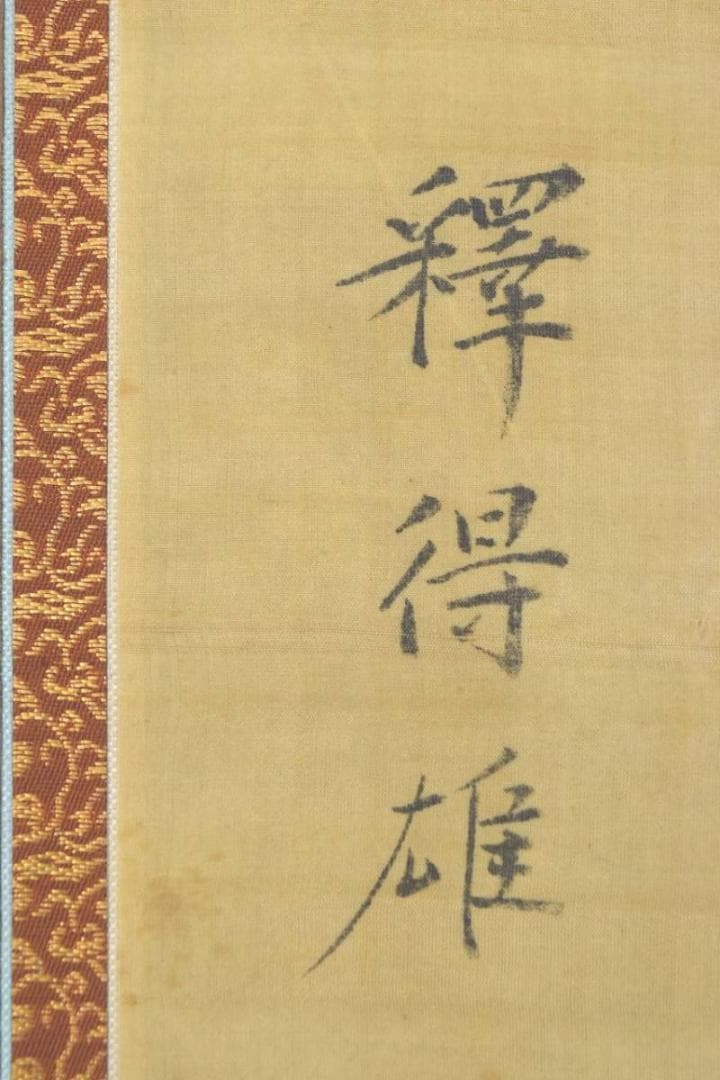 釋得雄